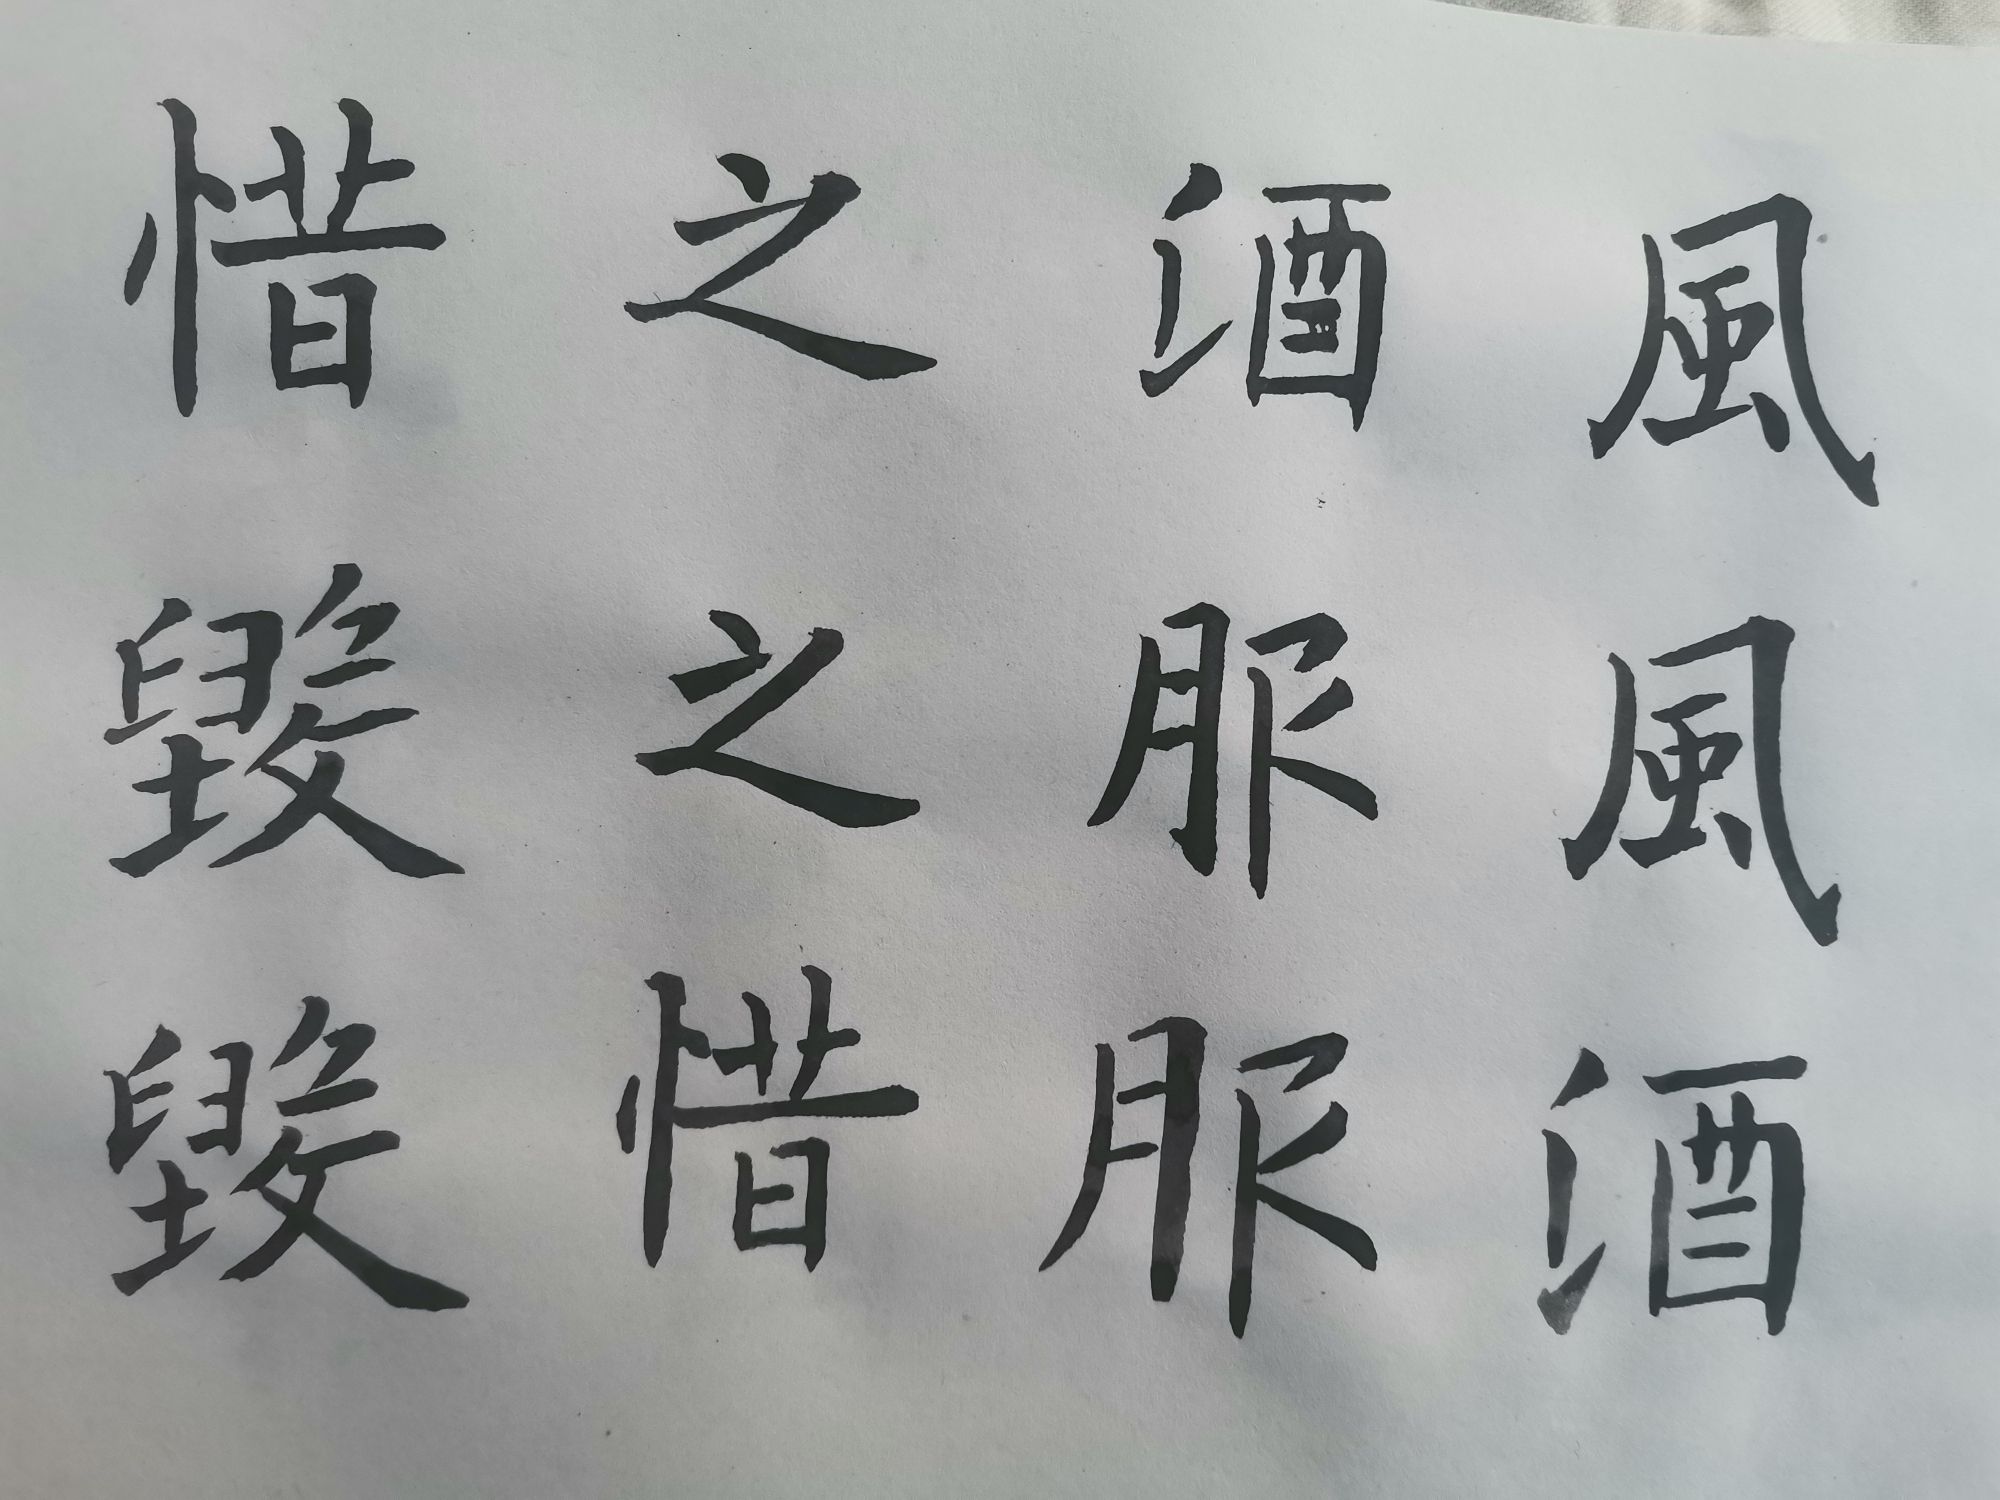 風風酒
酒服服
之之惜
惜毀毀